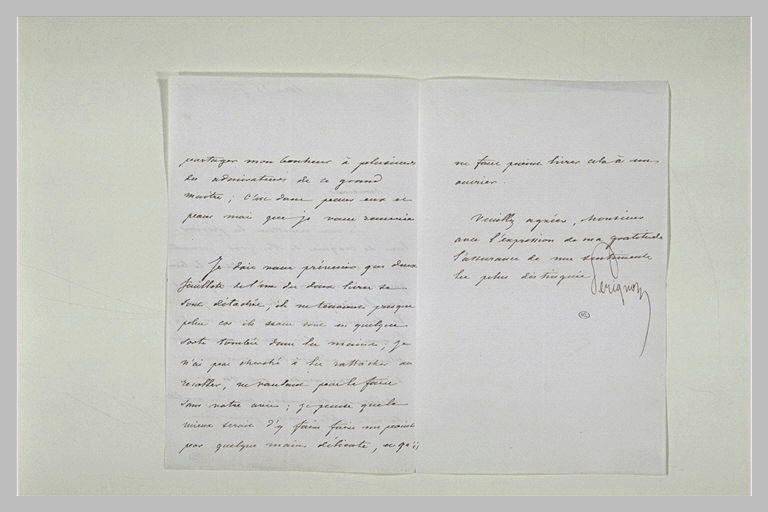 partager mon bonheur à plusieurs
des admirateurs de ce grand
maître ; c'est donc pour eux et
pour moi que je vous remercie
Je dois vous prévenir que deux
feuillets de l'un des deux livres se
sont détachés ; ils ne tenaient presque
plus car ils nous sont en quelque
sorte tombés dans les mains ; je
n'ai pas cherché à les rattacher ou
recoller, ne voulant pas le faire
sans votre avis ; je pense que le
mieux serait d'y faire faire un point
par quelque main délicate, et qu'il
ne faut point livrer cela à un
ouvrier.
Veuillez agréer, Monsieur
avec l'expression de ma gratitude
l'assurance de mes sentiments
les plus distingués
Perignon